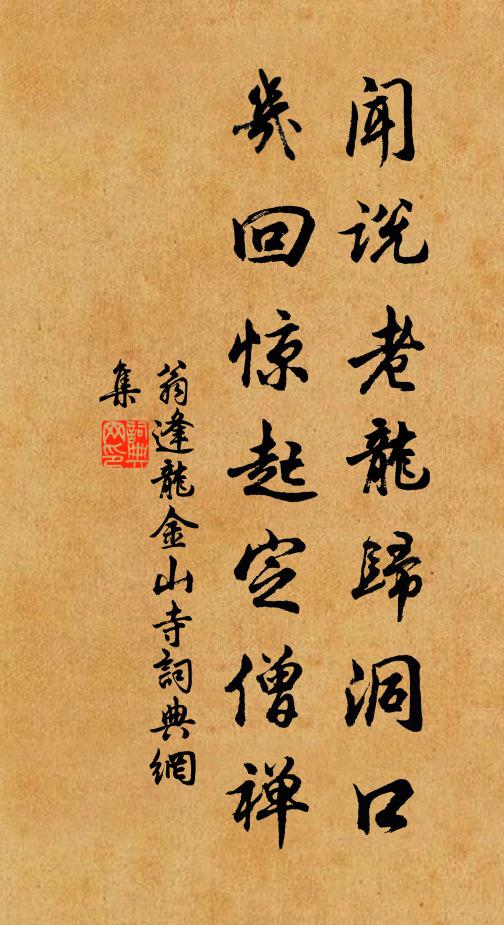 闻说老龍歸洞口
幾回惊起定僧禅
翁逢龍金山寺詞典網
集
詞典
网印